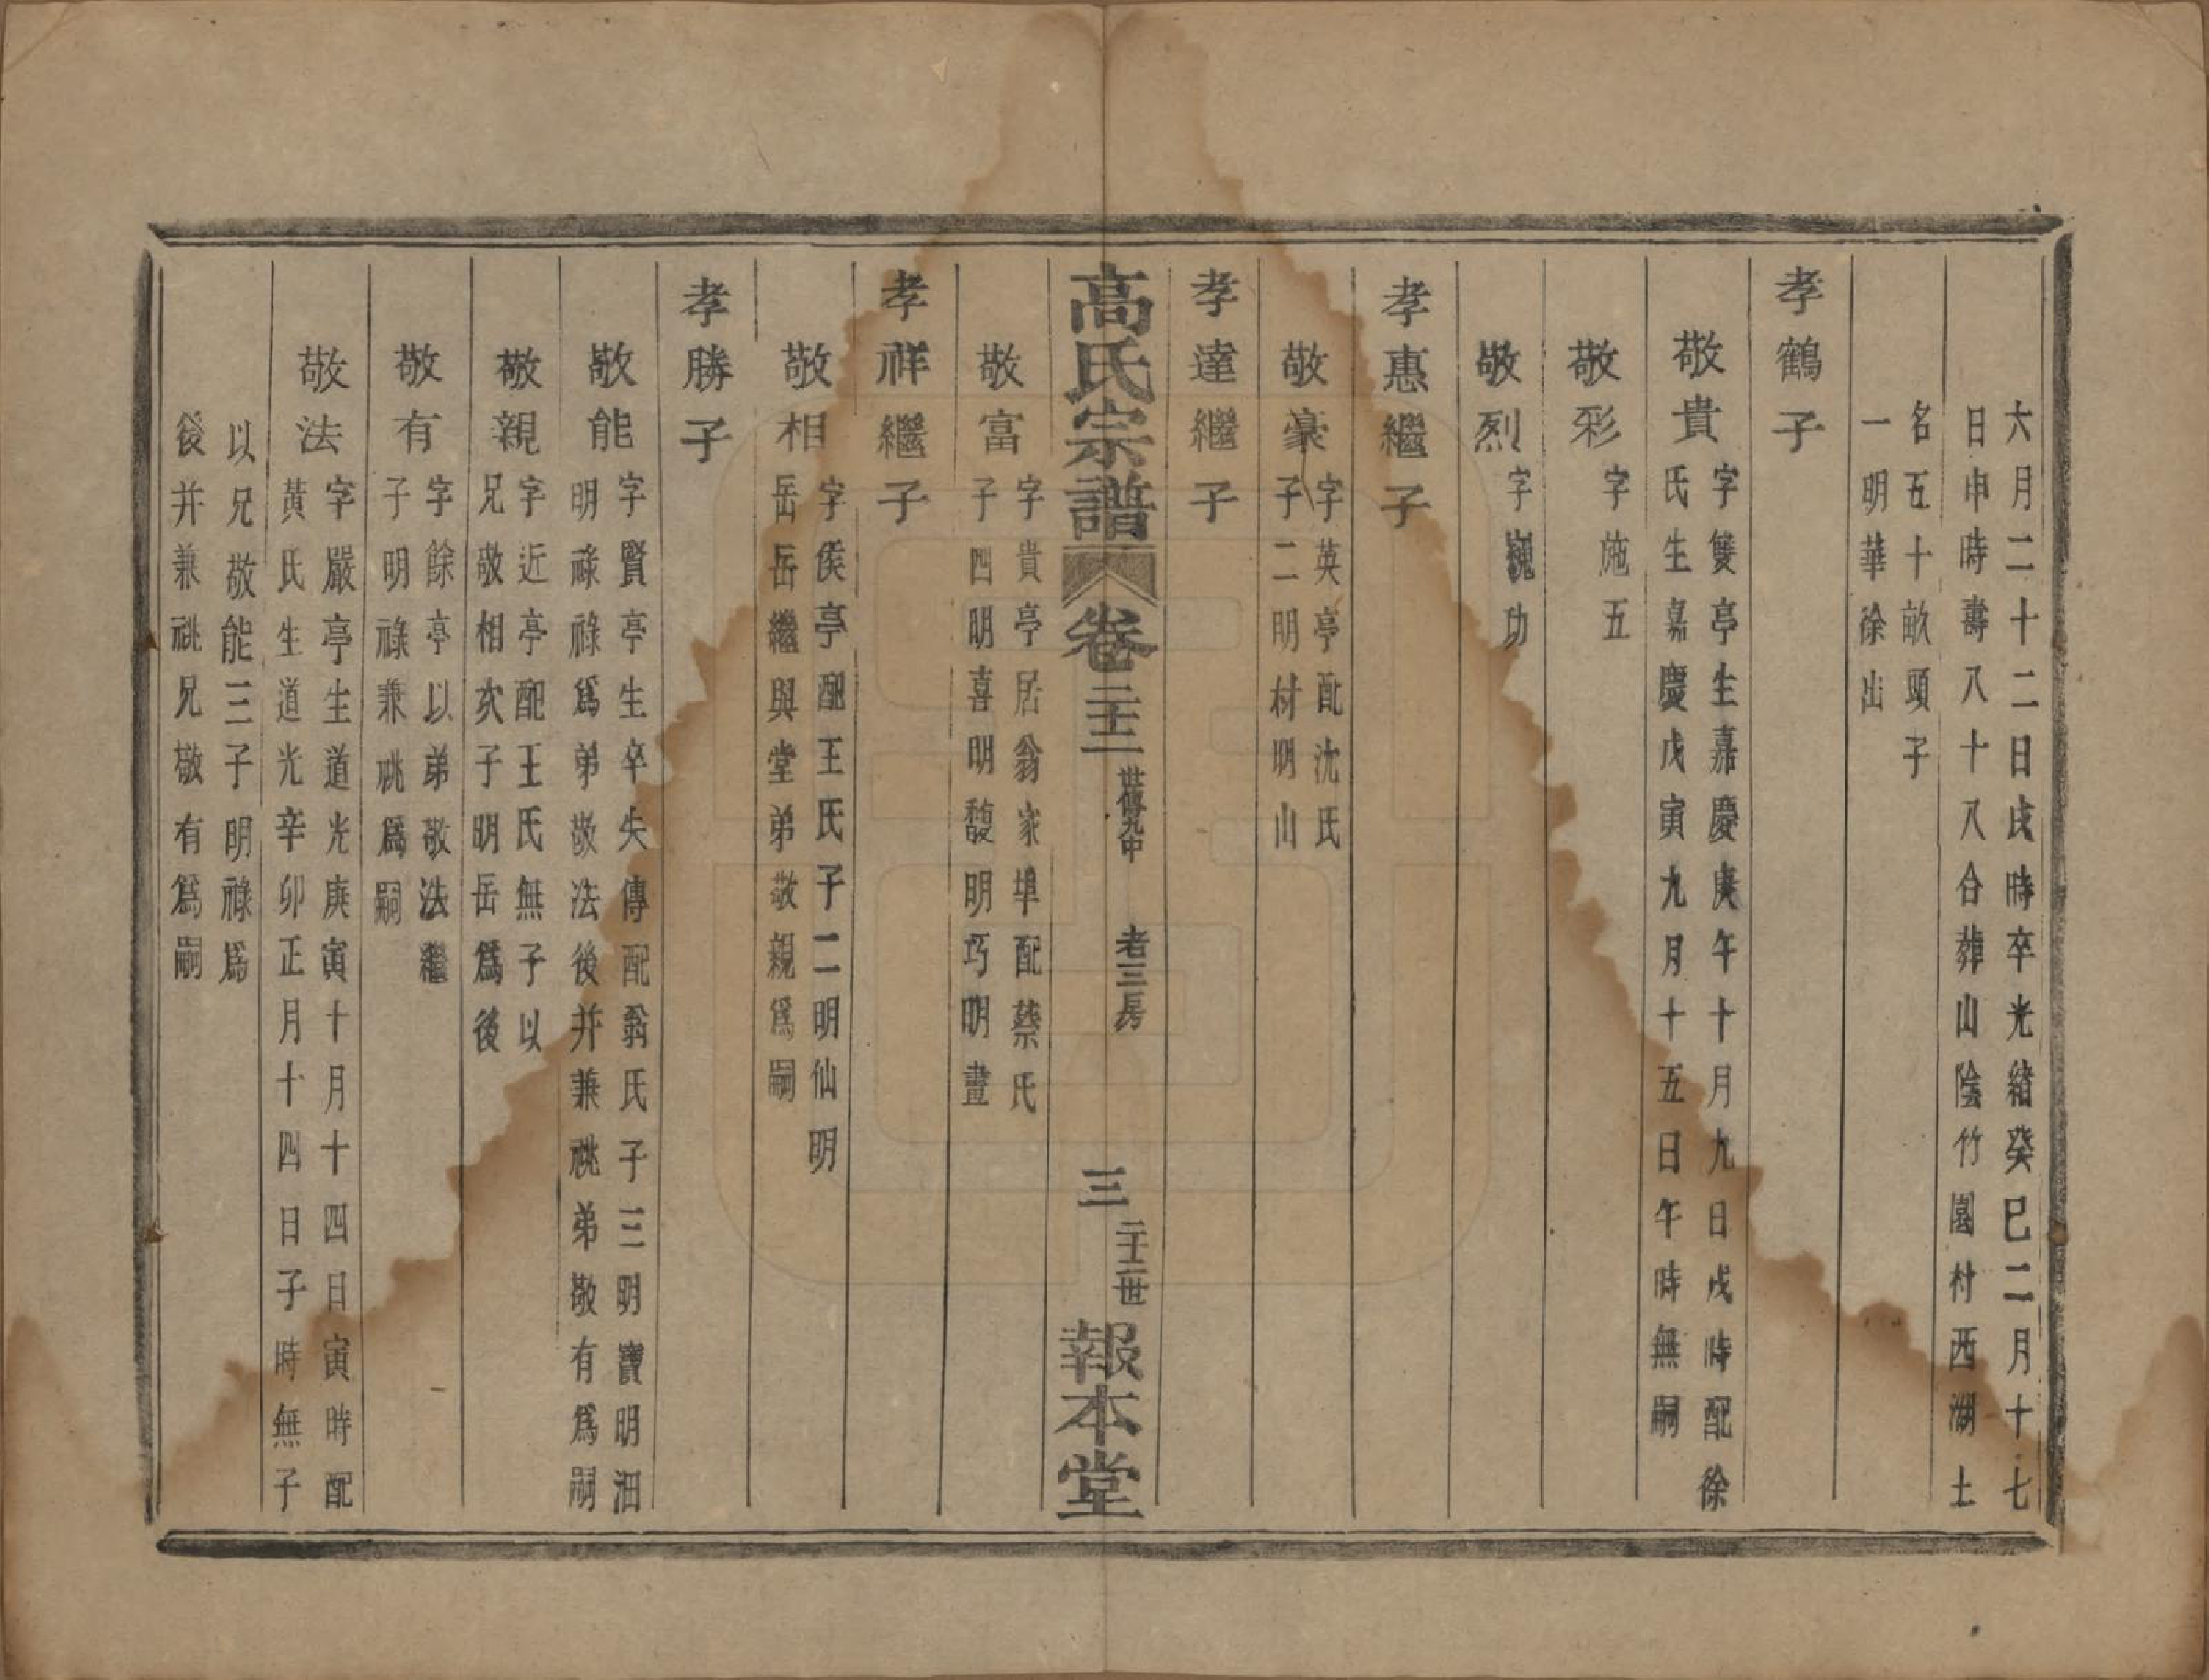 六月二十二日戌時卒光緒癸巳二月十七
日申時壽八十八合葬山陰竹園村西湖土
名五十畝頭子
一明華徐出
孝鶴子
敬貴
字雙亭生嘉慶庚午十月九日戌時配徐
氏生嘉慶戊寅九月十五日午時無嗣
敬彩
字施五
敬烈
字巍功
孝惠繼子
敬豪
字英亭配沈氏
子二明材明山
孝達繼子
高氏宗譜
卷二十二
世傳九中
老三房
三
二十三世
報本堂
敬富
字貴亭居翁家埠配蔡氏
子四明喜明馥明巧明畫
孝祥繼子
敬相
字侯亭配王氏子二明仙明
岳岳繼與堂弟敬親爲嗣
孝勝子
敬能
字賢亭生卒失傳配翁氏子三明寶明沺
明祿祿爲弟敬法後并兼祧弟敬有爲嗣
敬親
字近亭配王氏無子以
兄敬相次子明岳爲後
敬有
字餘亭以弟敬法繼
子明祿兼祧爲嗣
敬法
字嚴亭生道光庚寅十月十四日寅時配
黃氏生道光辛卯正月十四日子時無子
以兄敬能三子明祿爲
後并兼祧兄敬有爲嗣